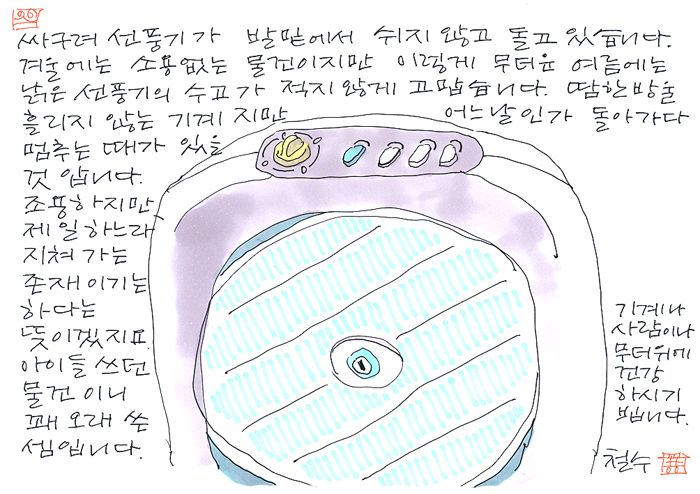 싸구려 선풍기가 발밑에서 쉬지 않고 돌고 있습니다.
겨울에는 소용없는 물건이지만 이렇게 무더운 여름에는
낡은 선풍기의 수고가 적지 않게 고맙습니다. 땀한방울
흘리지 않는 기계지만 어느날인가 돌아가다
멈추는 때가 있을
것 입니다.
조풍하지만
제 일하느라
지쳐 가는
존재이기는
하다는
뜻이겠지요.
아이들 쓰던
물건이니
꽤 오래 쓴
셈입니다.
기계나
사람이나
무더위에
건강
하시기
빕니다.
철수